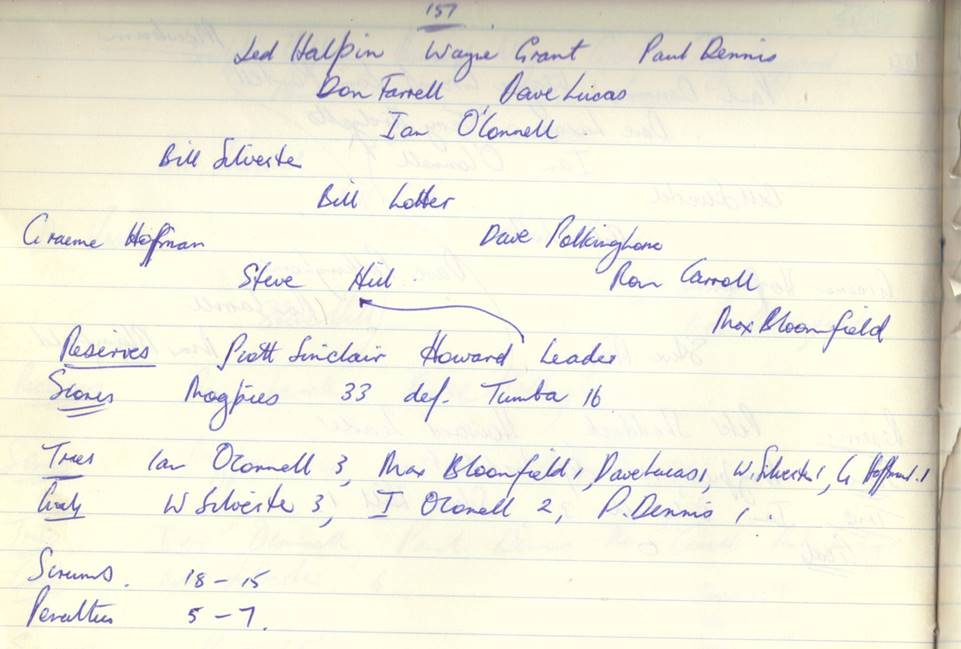 157
Led Halpin Wayne Grant Paul Dennis
Don Farrell Dave Lucas
Ian O'Connell
Bill Silvester
Bill Lotter
Graeme Hoffman Dave Polkinghorne
Steve Hill Ron Carroll
Max Bloomfield
Reserves Sinclair Howard Leader
Scores Magpies 33 def. Tumba 16
Tries Ian O'Connell 3, Max Bloomfield 1, Dave Lucas 1, W. Silvester 1, G Hoffman. 1
Goals W Silvester 3, I O'Connell 2, P. Dennis 1.
Scrums. 18 - 15
Penalties 5 - 7.